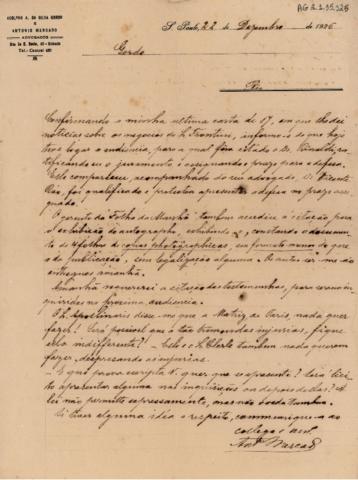 AG 2.1.95.526
ADOLPHO A. DA SILVA GORDO
E
ANTONIO MERCADO
ADVOGADOS
S. Paulo, 22 de Dezembro de 1926
Gordo
Rio
Confirmando a minha ultima carta de 17, em que dei
noticias sobre os negocios do informo-o de que hoje
teve logar a audiencia, para a qual fôra citado o
o juramento e o prazo para a defesa.
Este compareceu, acompanhado do seu advogado, Dr. Vicente
Ráo, foi qualificado e protestou apresentar a defesa no prazo assi-
gnado.
O gerente da Folha da Manhã tambem acudiu á citação para
a exhibição do autographo, exhibindo-o, constando o documen-
to de 4 folhas de copias photographicas, em formato menor do que
o da publicação, sem legalização alguma. Os autos ser-me-ão
entregues amanhã.
Amanhã requererei a citação das testemunhas, para serem in-
quiridas na proxima audiencia.
O Sr. Apollinaris disse-me que a Matriz de Paris, nada quer
fazer! Será possivel que a tão tremendas injurias, fique
ella indifferente? Elle e o Sr. tambem nada querem
fazer, desprezando as injurias.
E que prova escripta V. quer que se apresente? Será lici-
to apresentar alguma nas inquirições ou depois dellas? A
lei não permitte expressamente, mas não o veda tambem.
Si tiver alguma idéa a respeito, communique-a ao
collega e amº
Antº Mercado